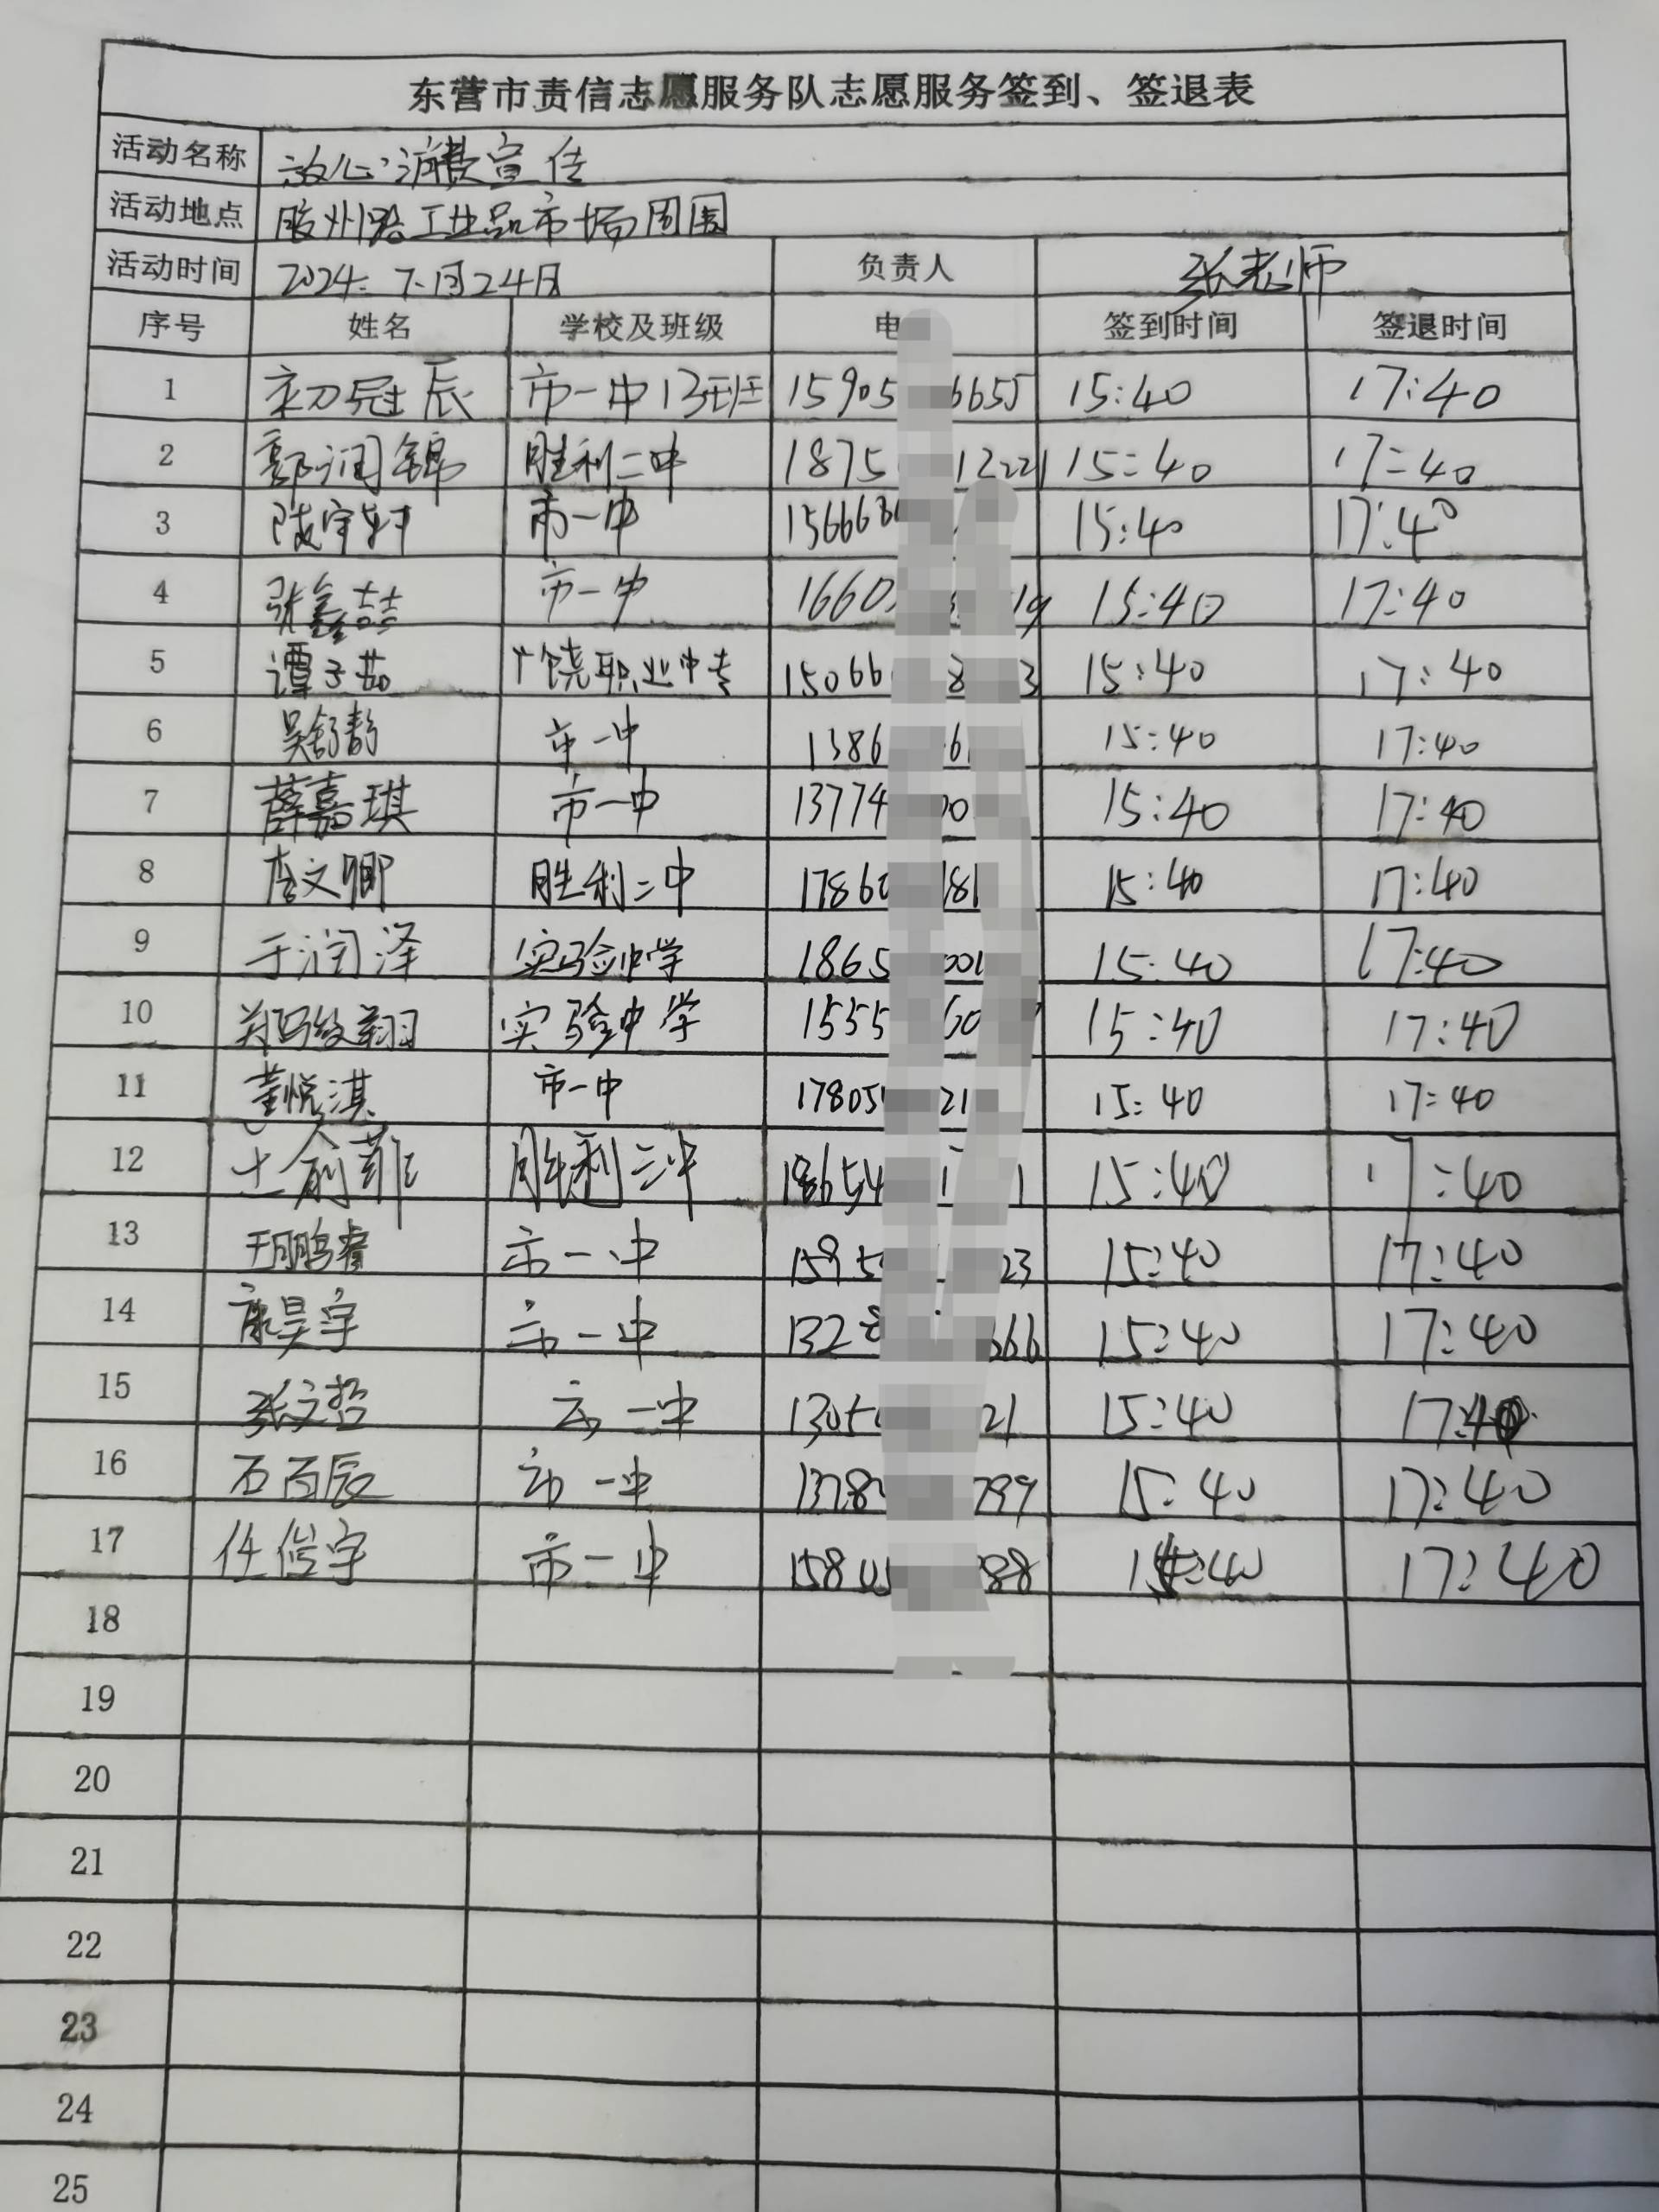 东营市责信志愿服务队志愿服务签到、签退表
活动名称 放心消费宣传
活动地点 胶州路工业品市场周围
活动时间 2024.7月24日 负责人 张老师
序号 姓名 学校及班级 电 签到时间 签退时间
1 初冠辰 市一中13班 15905 6655 15:40 17:40
2 郭润锦 胜利二中 1875 12221 15:40 17:40
3 陈宇轩 市一中 156663 15:40 17:40
4 张鑫喆 市一中 1660 19 15:40 17:40
5 谭子茹 广饶职业中专 15066 8 3 15:40 17:40
6 吴舒静 市一中 1386 6 15:40 17:40
7 薛嘉琪 市一中 13774 00 15:40 17:40
8 李文卿 胜利二中 1786 181 15:40 17:40
9 于润泽 实验中学 1865 001 15:40 17:40
10 翔 实验中学 1555 60 15:40 17:40
11 董悦淇 市一中 17805 21 15:40 17:40
12 俞菲 胜利二中 18654 1 1 15:40 17:40
13 王鹏睿 市一中 1595 23 15:40 17:40
14 康昊宇 市一中 132 666 15:40 17:40
15 张文哲 市一中 1305 21 15:40 17:40
16 石百辰 市一中 1378 799 15:40 17:40
17 任俊宇 市一中 158 88 15:40 17:40
18
19
20
21
22
23
24
25